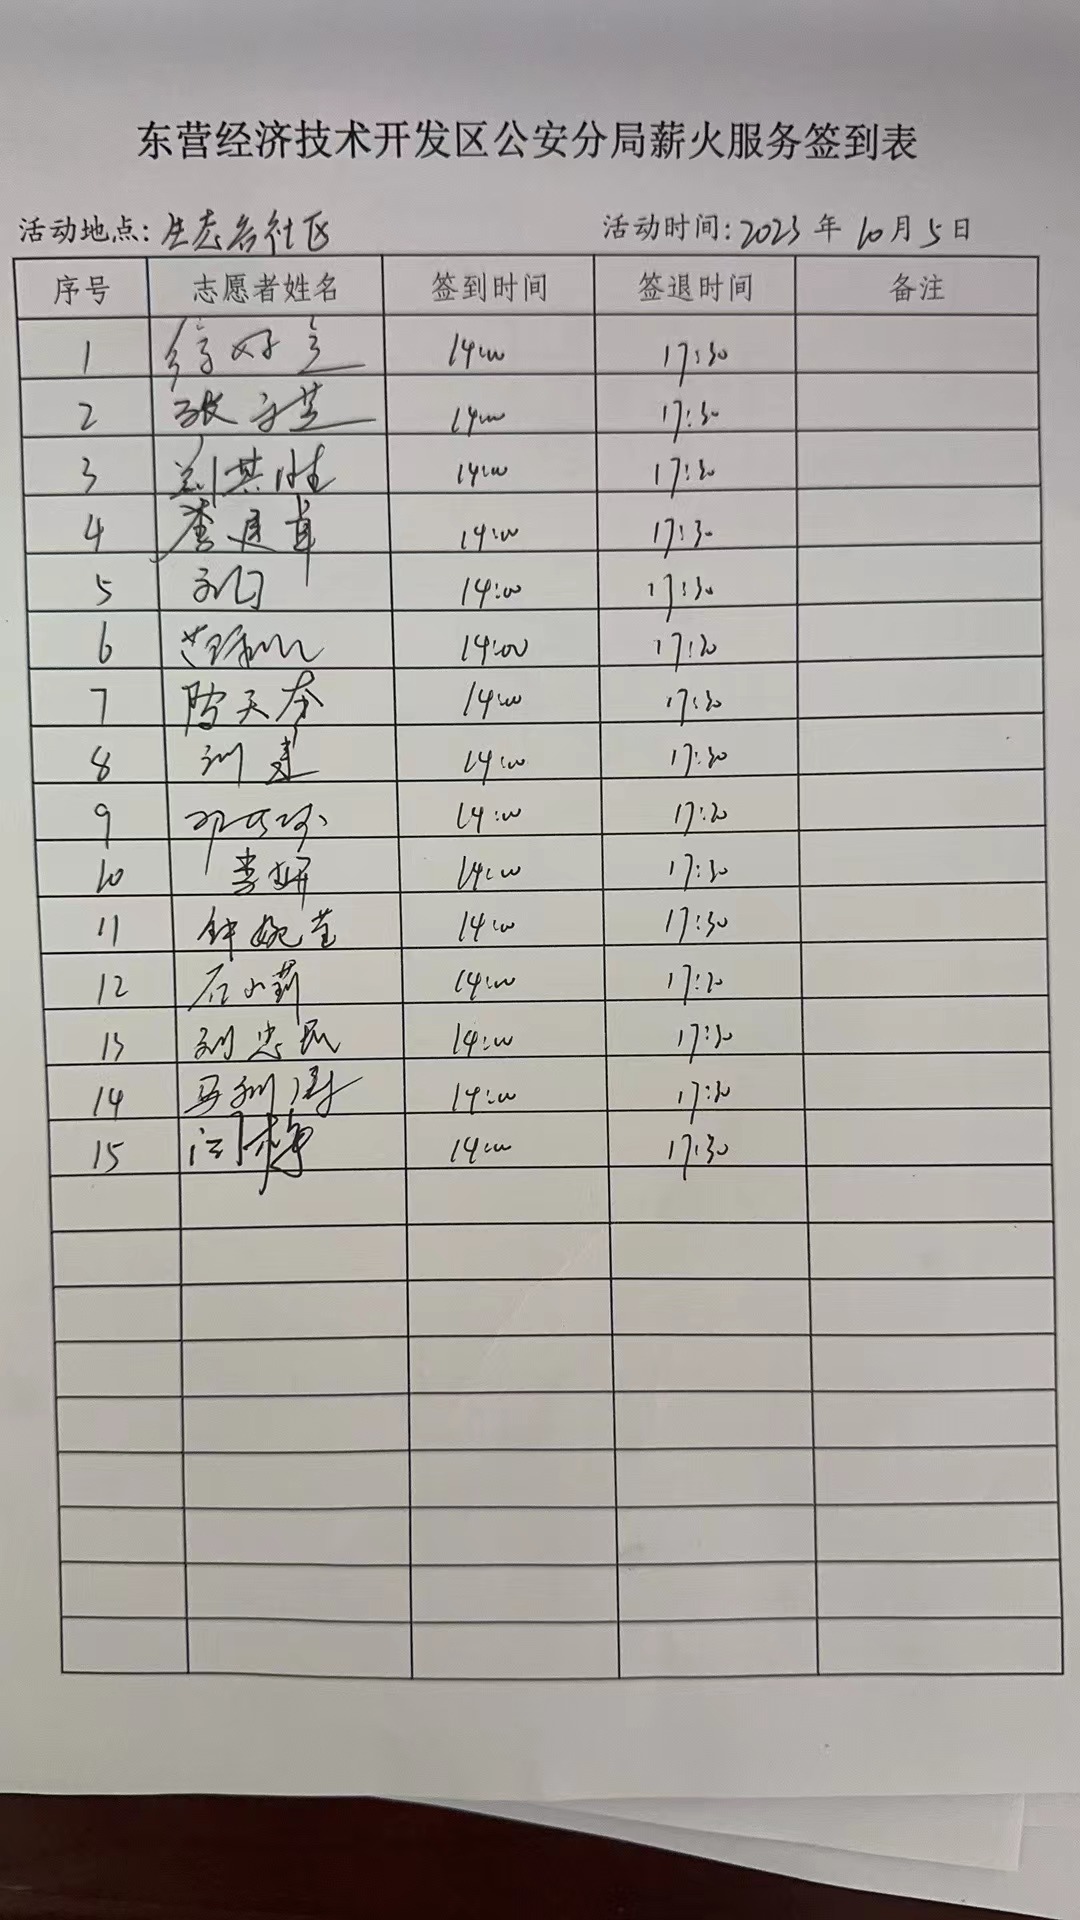 东营经济技术开发区公安分局薪火服务签到表
活动地点: 生态谷社区 活动时间: 2023年10月5日
序号 志愿者姓名 签到时间 签退时间 备注
1 14:00 17:30
2 张 14:00 17:30
3 刘其胜 14:00 17:30
4 李建章 14:00 17:30
5 14:00 17:30
6 范 14:00 17:30
7 陪天存 14:00 17:30
8 刘建 14:00 17:30
9 邓 14:00 17:30
10 李妍 14:00 17:30
11 钟婉莹 14:00 17:30
12 石小莉 14:00 17:30
13 刘忠民 14:00 17:30
14 14:00 17:30
15 闫梅 14:00 17:30